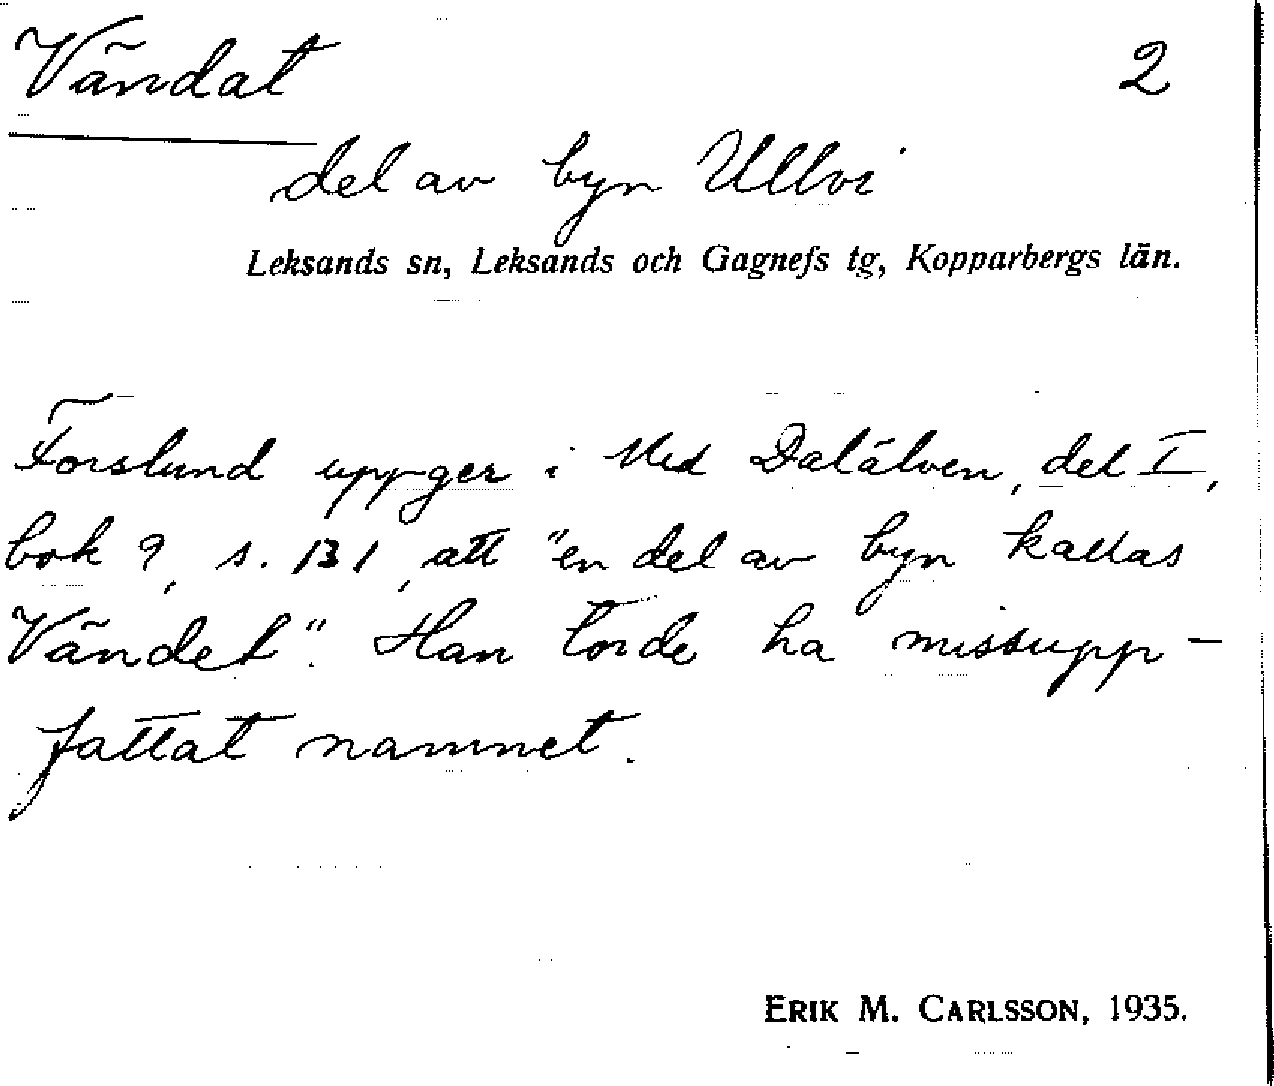 Vändat 2
del av byn Ullvi
Leksands sn, Leksands och Gagnefs tg, Kopparbergs län.
Forslund uppger i Med Dalälven, del I,
bok 9, s. 131, att "en del av byn kallas
Vändet". Han torde ha missupp-
fattat namnet.
ERIK M. CARLSSON, 1935.